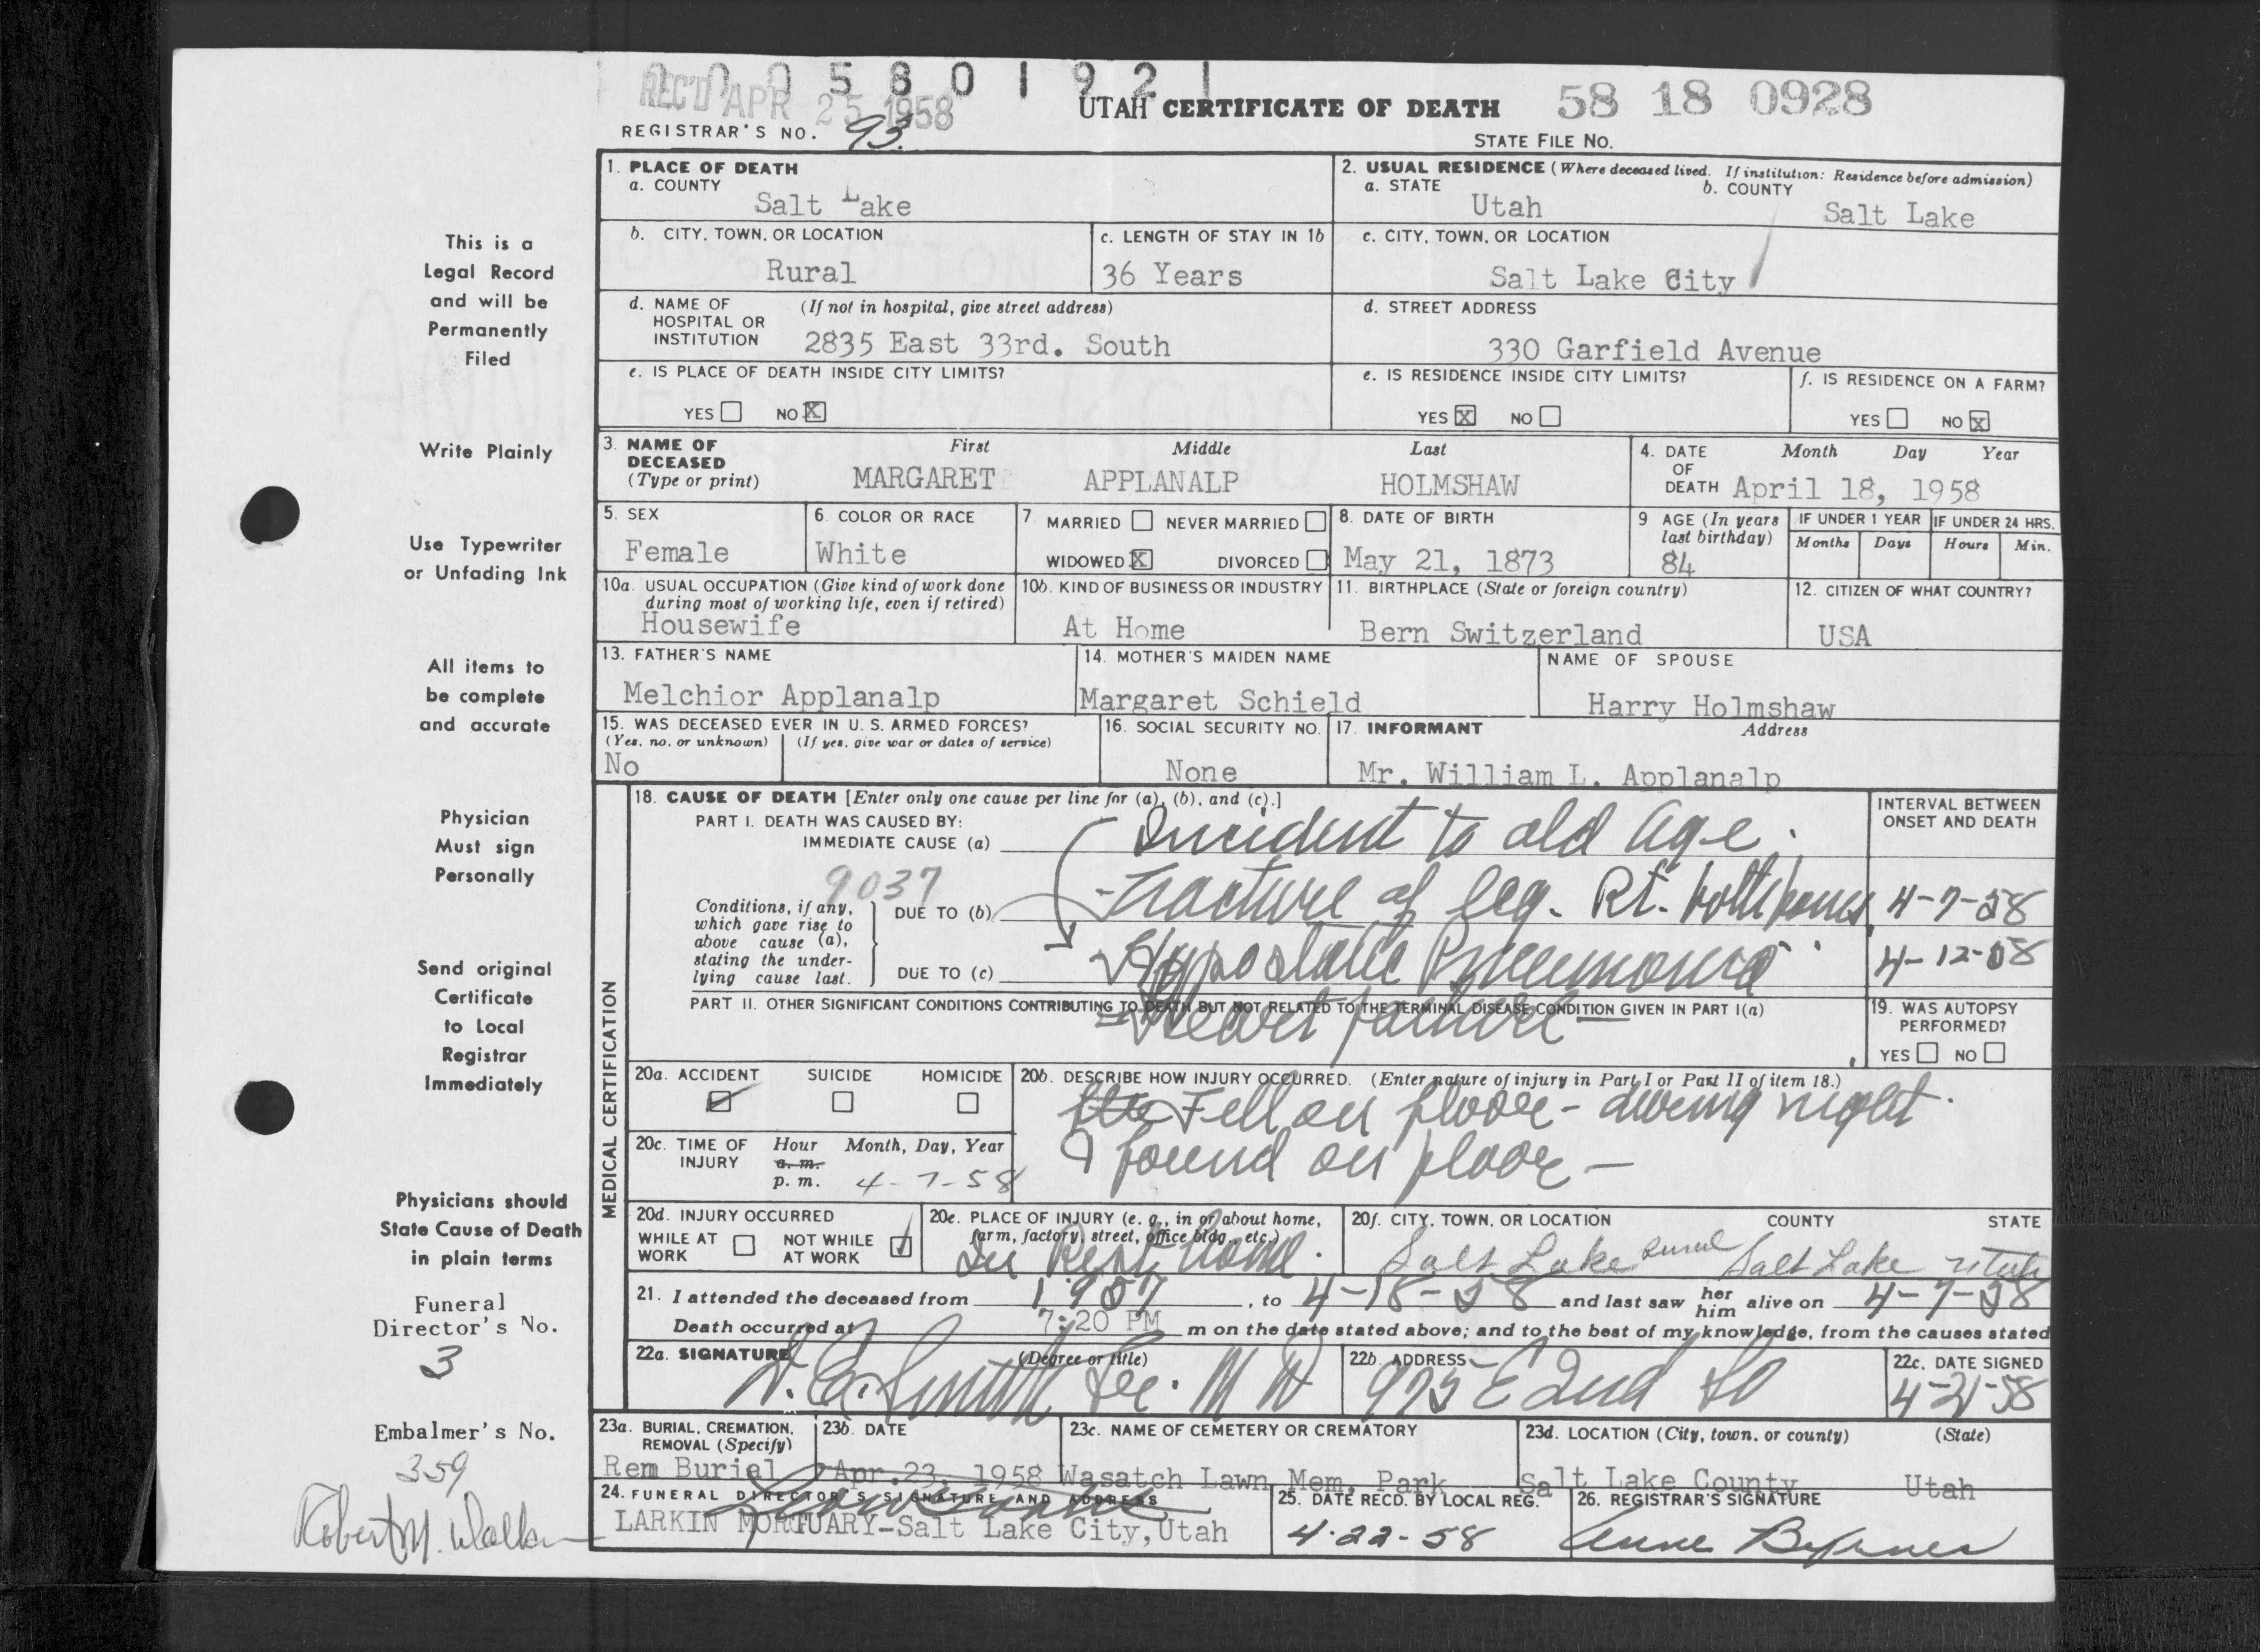 0 0 0 5 8 0 1 9 2 1
REC'D APR 25 1958
UTAH CERTIFICATE OF DEATH
58 18 0928
REGISTRAR'S NO. 93.
STATE FILE NO.
This is a
Legal Record
and will be
Permanently
Filed
Write Plainly
Use Typewriter
or Unfading Ink
All items to
be complete
and accurate
Physician
Must sign
Personally
Send original
Certificate
to Local
Registrar
Immediately
Physicians should
State Cause of Death
in plain terms
Funeral
Director's No.
3
Embalmer's No.
359
1. PLACE OF DEATH
a. COUNTY
Salt Lake
2. USUAL RESIDENCE (Where deceased lived. If institution: Residence before admission)
a. STATE
Utah
b. COUNTY
Salt Lake
b. CITY, TOWN, OR LOCATION
Rural
c. LENGTH OF STAY IN 1b
36 Years
c. CITY, TOWN, OR LOCATION
Salt Lake City
d. NAME OF (If not in hospital, give street address)
HOSPITAL OR
INSTITUTION 2835 East 33rd. South
d. STREET ADDRESS
330 Garfield Avenue
e. IS PLACE OF DEATH INSIDE CITY LIMITS?
YES NO X
e. IS RESIDENCE INSIDE CITY LIMITS?
YES X NO
f. IS RESIDENCE ON A FARM?
YES NO X
3. NAME OF DECEASED (Type or print)
First Middle Last
MARGARET APPLANALP HOLMSHAW
4. DATE OF DEATH
Month Day Year
April 18, 1958
5. SEX
Female
6. COLOR OR RACE
White
7. MARRIED NEVER MARRIED
WIDOWED X DIVORCED
8. DATE OF BIRTH
May 21, 1873
9 AGE (In years last birthday)
84
IF UNDER 1 YEAR
Months Days
IF UNDER 24 HRS.
Hours Min.
10a. USUAL OCCUPATION (Give kind of work done
during most of working life, even if retired)
Housewife
10b. KIND OF BUSINESS OR INDUSTRY
At Home
11. BIRTHPLACE (State or foreign country)
Bern Switzerland
12. CITIZEN OF WHAT COUNTRY?
USA
13. FATHER'S NAME
Melchior Applanalp
14. MOTHER'S MAIDEN NAME
Margaret Schield
NAME OF SPOUSE
Harry Holmshaw
15. WAS DECEASED EVER IN U. S. ARMED FORCES?
(Yes, no, or unknown) (If yes, give war or dates of service)
No
16. SOCIAL SECURITY NO.
None
17. INFORMANT Address
Mr. William L. Applanalp
MEDICAL CERTIFICATION
18. CAUSE OF DEATH [Enter only one cause per line for (a), (b), and (c).]
INTERVAL BETWEEN
ONSET AND DEATH
PART I. DEATH WAS CAUSED BY:
IMMEDIATE CAUSE (a) Incident to old age.
9037
Conditions, if any,
which gave rise to
above cause (a),
stating the under-
lying cause last.
DUE TO (b) Fracture of leg. Rt. both bones 4-7-58
DUE TO (c) Hypostatic Pneumonia 4-12-58
PART II. OTHER SIGNIFICANT CONDITIONS CONTRIBUTING TO DEATH BUT NOT RELATED TO THE TERMINAL DISEASE CONDITION GIVEN IN PART I(a)
Heart failure
19. WAS AUTOPSY
PERFORMED?
YES NO
20a. ACCIDENT SUICIDE HOMICIDE
20b. DESCRIBE HOW INJURY OCCURRED. (Enter nature of injury in Part I or Part II of item 18.)
Fell on floor - during night.
& found on floor -
20c. TIME OF INJURY
Hour Month, Day, Year
a. m.
p. m. 4-7-58
20d. INJURY OCCURRED
WHILE AT WORK NOT WHILE AT WORK
20e. PLACE OF INJURY (e. g., in or about home,
farm, factory, street, office bldg., etc.)
In Rest home.
20f. CITY, TOWN, OR LOCATION COUNTY STATE
Salt Lake rural Salt Lake Utah
21. I attended the deceased from 1957, to 4-18-58 and last saw her him alive on 4-7-58
Death occurred at 7:20 PM m on the date stated above; and to the best of my knowledge, from the causes stated
22a. SIGNATURE (Degree or title)
Smith M D
22b. ADDRESS
975 E 2nd So
22c. DATE SIGNED
4-21-58
23a. BURIAL, CREMATION,
REMOVAL (Specify)
Rem Burial
23b. DATE
Apr. 23, 1958
23c. NAME OF CEMETERY OR CREMATORY
Wasatch Lawn Mem. Park
23d. LOCATION (City, town, or county) (State)
Salt Lake County Utah
24. FUNERAL DIRECTOR'S SIGNATURE AND ADDRESS
LARKIN MORTUARY-Salt Lake City, Utah
25. DATE RECD. BY LOCAL REG.
4-22-58
26. REGISTRAR'S SIGNATURE
Anne
Robert M. Walker